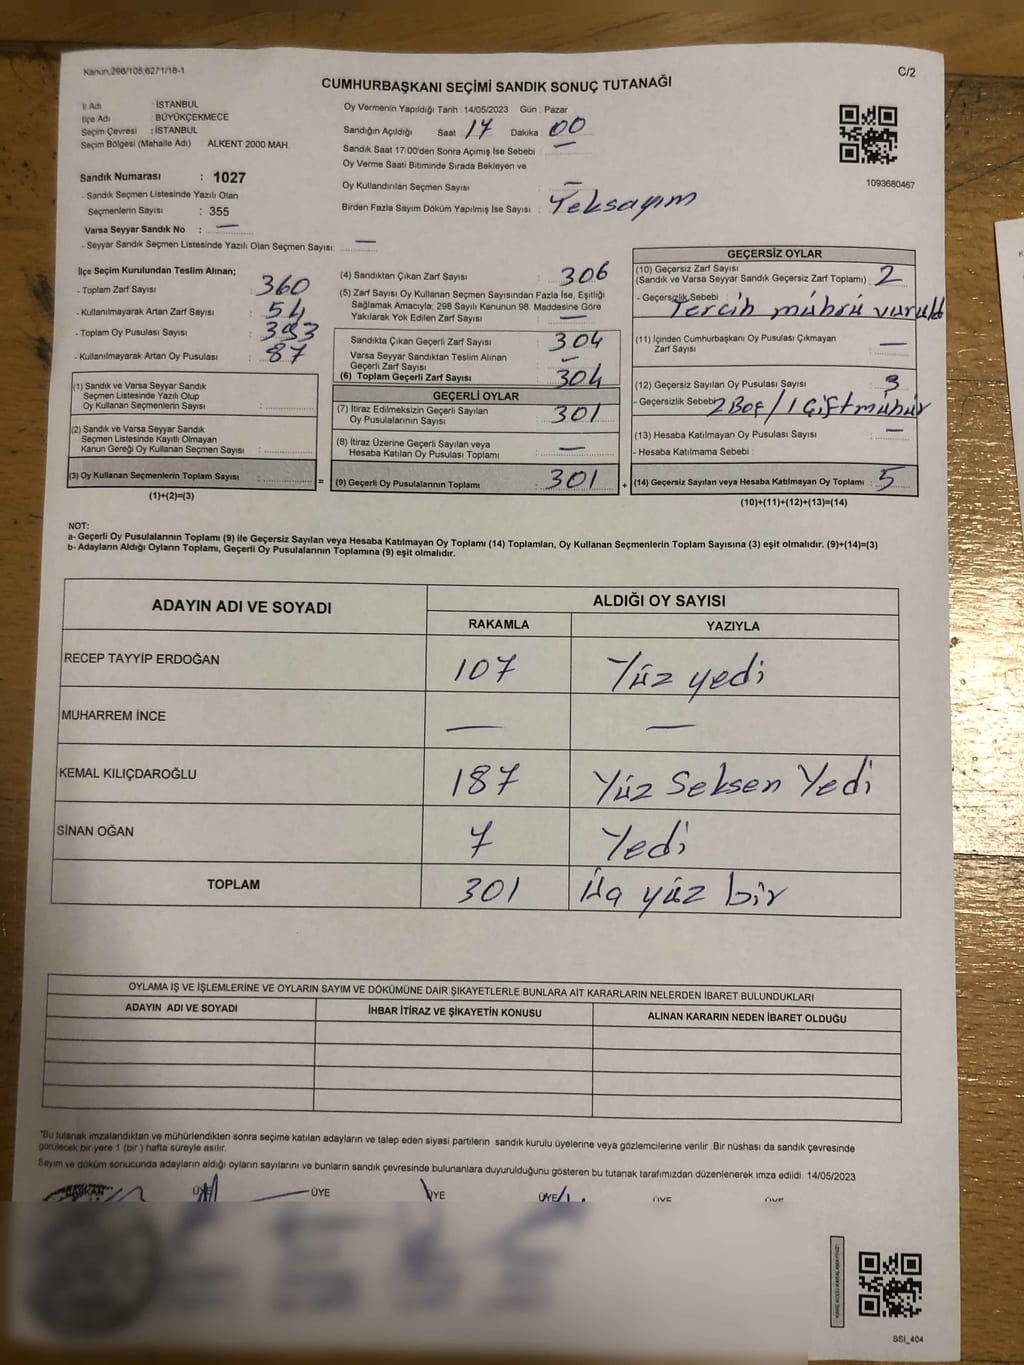 Kanun.298/105;6271/18-1
C/2
CUMHURBAŞKANI SEÇİMİ SANDIK SONUÇ TUTANAĞI
İl Adı : İSTANBUL
İlçe Adı : BÜYÜKÇEKMECE
Seçim Çevresi : İSTANBUL
Seçim Bölgesi (Mahalle Adı) ALKENT 2000 MAH.
Sandık Numarası : 1027
- Sandık Seçmen Listesinde Yazılı Olan
Seçmenlerin Sayısı : 355
Varsa Seyyar Sandık No : —
- Seyyar Sandık Seçmen Listesinde Yazılı Olan Seçmen Sayısı: —
Oy Vermenin Yapıldığı Tarih : 14/05/2023 Gün : Pazar
Sandığın Açıldığı Saat 17 Dakika : 00
Sandık Saat 17:00'den Sonra Açımış İse Sebebi : —
Oy Verme Saati Bitiminde Sırada Bekleyen ve
Oy Kullandırılan Seçmen Sayısı : —
Birden Fazla Sayım Döküm Yapılmış İse Sayısı : Teksayım
1093680467
İlçe Seçim Kurulundan Teslim Alınan;
- Toplam Zarf Sayısı 360
- Kullanılmayarak Artan Zarf Sayısı 54
- Toplam Oy Pusulası Sayısı : 393
- Kullanılmayarak Artan Oy Pusulası : 87
(1) Sandık ve Varsa Seyyar Sandık
Seçmen Listesinde Yazılı Olup
Oy Kullanan Seçmenlerin Sayısı :
(2) Sandık ve Varsa Seyyar Sandık
Seçmen Listesinde Kayıtlı Olmayan
Kanun Gereği Oy Kullanan Seçmen Sayısı :
(3) Oy Kullanan Seçmenlerin Toplam Sayısı :
(1)+(2)=(3)
=
(4) Sandıktan Çıkan Zarf Sayısı : 306
(5) Zarf Sayısı Oy Kullanan Seçmen Sayısından Fazla İse, Eşitliği
Sağlamak Amacıyla, 298 Sayılı Kanunun 98. Maddesine Göre
Yakılarak Yok Edilen Zarf Sayısı : —
Sandıkta Çıkan Geçerli Zarf Sayısı : 304
Varsa Seyyar Sandıktan Teslim Alınan
Geçerli Zarf Sayısı : —
(6) Toplam Geçerli Zarf Sayısı : 304
GEÇERLİ OYLAR
(7) İtiraz Edilmeksizin Geçerli Sayılan
Oy Pusulalarının Sayısı : 301
(8) İtiraz Üzerine Geçerli Sayılan veya
Hesaba Katılan Oy Pusulası Toplamı : —
(9) Geçerli Oy Pusulalarının Toplamı : 301
+
GEÇERSİZ OYLAR
(10) Geçersiz Zarf Sayısı
(Sandık ve Varsa Seyyar Sandık Geçersiz Zarf Toplamı) : 2
- Geçersizlik Sebebi :
Tercih mührü vuruldu
(11) İçinden Cumhurbaşkanı Oy Pusulası Çıkmayan
Zarf Sayısı : —
(12) Geçersiz Sayılan Oy Pusulası Sayısı : 3
- Geçersizlik Sebebi 2 Boş / 1 Çift mühür
(13) Hesaba Katılmayan Oy Pusulası Sayısı : —
- Hesaba Katılmama Sebebi :
(14) Geçersiz Sayılan veya Hesaba Katılmayan Oy Toplamı : 5
(10)+(11)+(12)+(13)=(14)
NOT:
a- Geçerli Oy Pusulalarının Toplamı (9) ile Geçersiz Sayılan veya Hesaba Katılmayan Oy Toplamı (14) Toplamları, Oy Kullanan Seçmenlerin Toplam Sayısına (3) eşit olmalıdır. (9)+(14)=(3)
b- Adayların Aldığı Oyların Toplamı, Geçerli Oy Pusulalarının Toplamına (9) eşit olmalıdır.
ADAYIN ADI VE SOYADI ALDIĞI OY SAYISI
RAKAMLA YAZIYLA
RECEP TAYYİP ERDOĞAN 107 Yüz yedi
MUHARREM İNCE — —
KEMAL KILIÇDAROĞLU 187 Yüz Seksen Yedi
SİNAN OĞAN 7 Yedi
TOPLAM 301 Üç yüz bir
OYLAMA İŞ VE İŞLEMLERİNE VE OYLARIN SAYIM VE DÖKÜMÜNE DAİR ŞİKAYETLERLE BUNLARA AİT KARARLARIN NELERDEN İBARET BULUNDUKLARI
ADAYIN ADI VE SOYADI İHBAR İTİRAZ VE ŞİKAYETİN KONUSU ALINAN KARARIN NEDEN İBARET OLDUĞU
"Bu tutanak imzalandıktan ve mühürlendikten sonra seçime katılan adayların ve talep eden siyasi partilerin sandık kurulu üyelerine veya gözlemcilerine verilir. Bir nüshası da sandık çevresinde
görülecek bir yere 1 (bir ) hafta süreyle asılır.
Sayım ve döküm sonucunda adayların aldığı oyların sayılarını ve bunların sandık çevresinde bulunanlara duyurulduğunu gösteren bu tutanak tarafımızdan düzenlenerek imza edildi. 14/05/2023
BAŞKAN ÜYE ÜYE ÜYE ÜYE ÜYE ÜYE
SSI_404